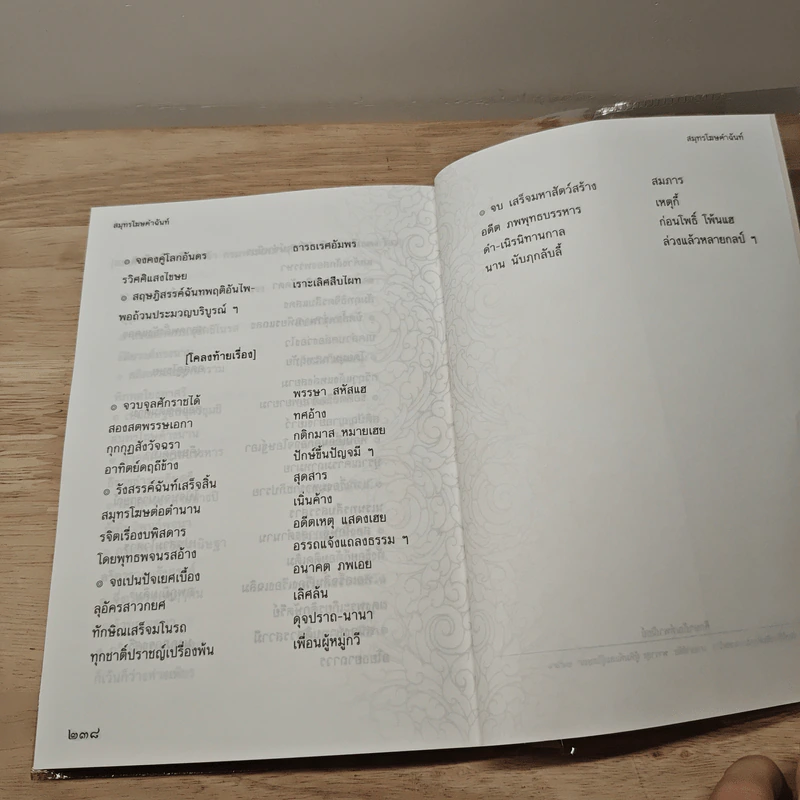 สมุทรโฆษคำฉันท์
๏ จงคงคู่โลกอันดร ธารธเรศอัมพร
รวิศศิแสงไขษย
๏ สฤษฎิสรรค์ฉันทพฤติอันไพ- เราะเลิศสืบไผท
พอถ้วนประมวญบริบูรณ์ ฯ
[โคลงท้ายเรื่อง]
๏ จวบจุลศักราชได้ พรรษา สหัสแฮ
สองสตพรรษเอกา ทศอ้าง
กุกกุฏสังวัจฉรา กติกมาส หมายเฮย
อาทิตย์ดฤถีข้าง ปักษ์ขึ้นปัญจมี ฯ
๏ รังสรรค์ฉันท์เสร็จสิ้น สุดสาร
สมุทรโฆษต่อตำนาน เนิ่นค้าง
รจิตเรื่องบพิสดาร อดีตเหตุ แสดงเฮย
โดยพุทธพจนรสอ้าง อรรถแจ้งแถลงธรรม ฯ
๏ จงเปนปัจเยศเบื้อง อนาคต ภพเอย
ลุอัครสาวกยศ เลิศล้น
ทักษิณเสร็จมโนรถ ดุจปราถ-นานา
ทุกชาติ์ปราชญ์เปรื่องพ้น เพื่อนผู้หมู่กวี
๒๓๘
สมุทรโฆษคำฉันท์
๏ จบ เสร็จมหาสัตว์สร้าง สมภาร
อดีต ภพพุทธบรรหาร เหตุกี้
ดำ-เนิรนิทานกาล ก่อนโพธิ์ โพ้นแฮ
นาน นับภฺกลับลี้ ล่วงแล้วหลายกลป์ ฯ